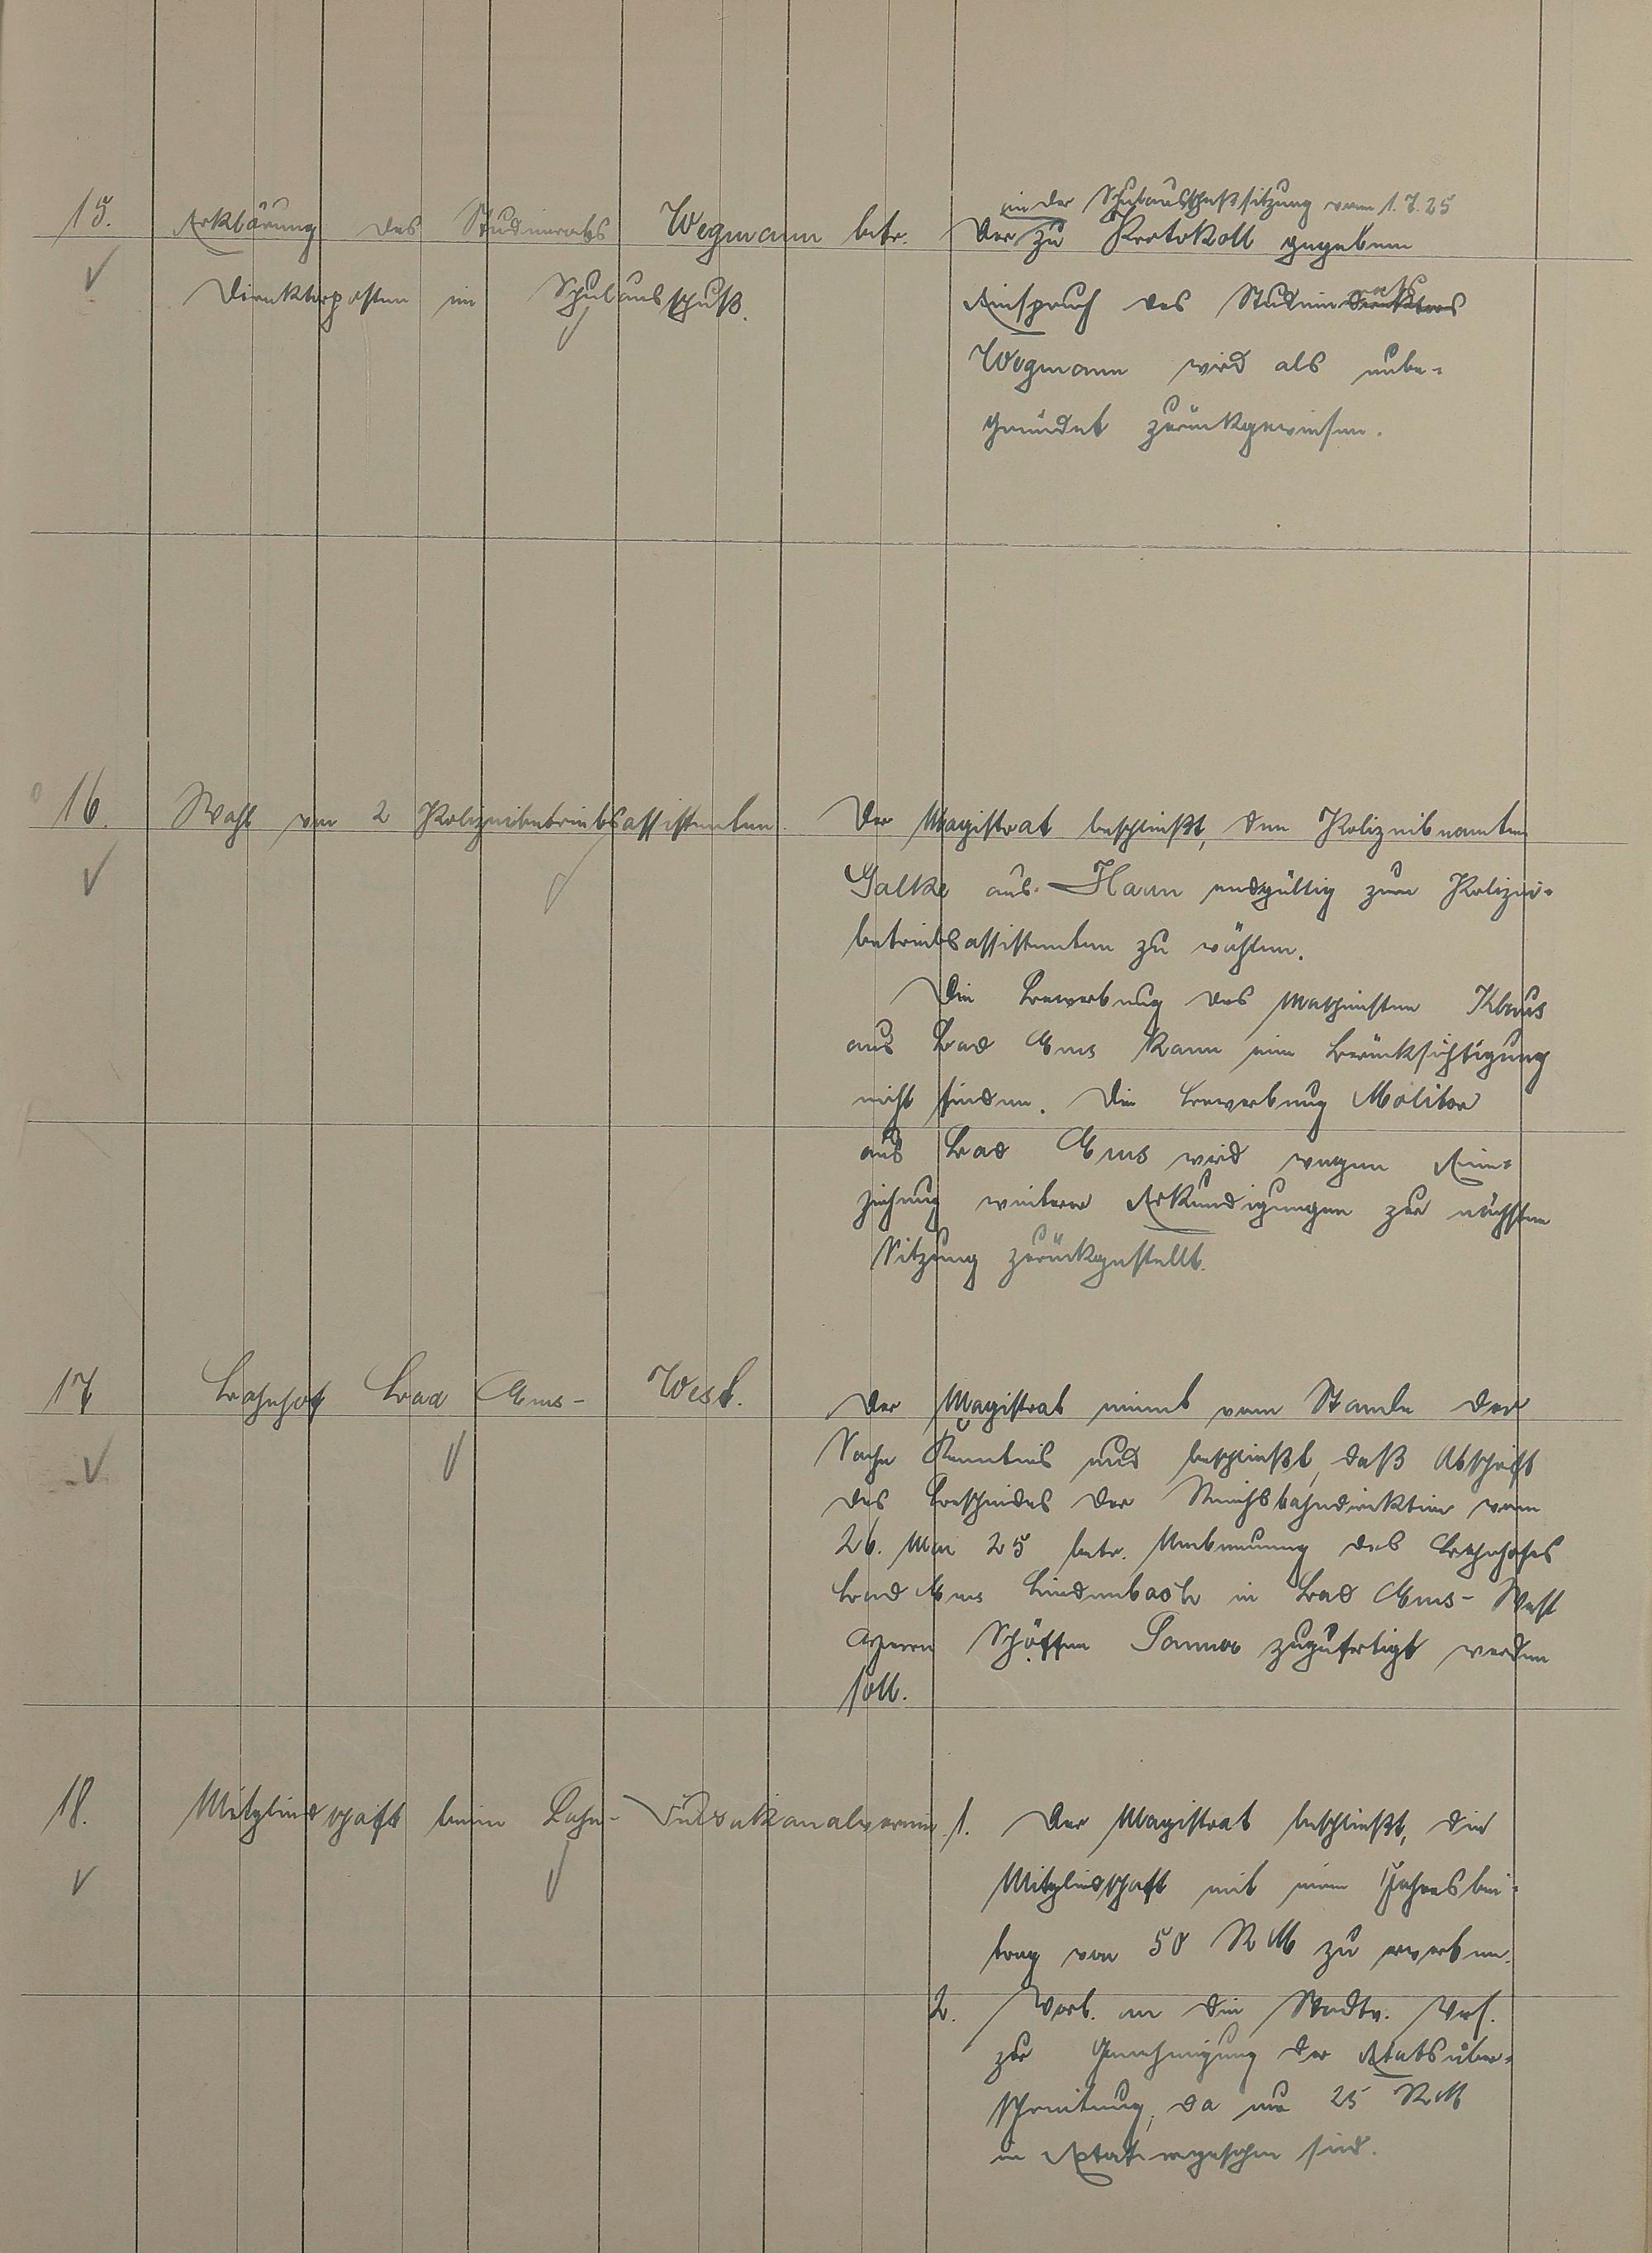 15.
Erklärung des Studienrats Wegmann betr.
Direktorposten im Schulausschuß.
in der Schulausschußsitzung vom 1.7.25
Der zu Protokoll gegebene
Einspruch des Studiendirektors rats
Wegmann wird als unbe-
gründet zurückgewiesen.
16.
Wahl von 2 Polizeibetriebsassistenten.
Der Magistrat beschließt, den Polizeibeamten
Galke aus Haan endgültig zum Polizei-
betriebsassistenten zu wählen.
Die Bewerbung des Maschinisten Klaus
aus Bad Ems kann eine Berücksichtigung
nicht finden. Die Bewerbung Molitor
aus Bad Ems wird wegen Ein-
ziehung weiterer Erkundigungen zur nächsten
Sitzung zurückgestellt.
17
Bahnhof Bad Ems- West.
Der Magistrat nimmt vom Stande der
Sache Kenntnis und beschließt, daß Abschrift
des Bescheides der Reichsbahndirektion vom
26. Mai 25 betr. Umbenennung des Bahnhofes
Bad Ems Lindenbach in Bad Ems- West
Herrn Schöffen zugefertigt werden
soll.
18.
Mitgliedschaft beim Lahn-
1. Der Magistrat beschließt, die
Mitgliedschaft mit einem Jahresbei-
trag von 50 RM zu erwerben.
2. Vorl. an die Stadtv. Vers.
zur Genehmigung der Etatsüber-
schreitung, da nur 25 RM
im Etat vorgesehen sind.